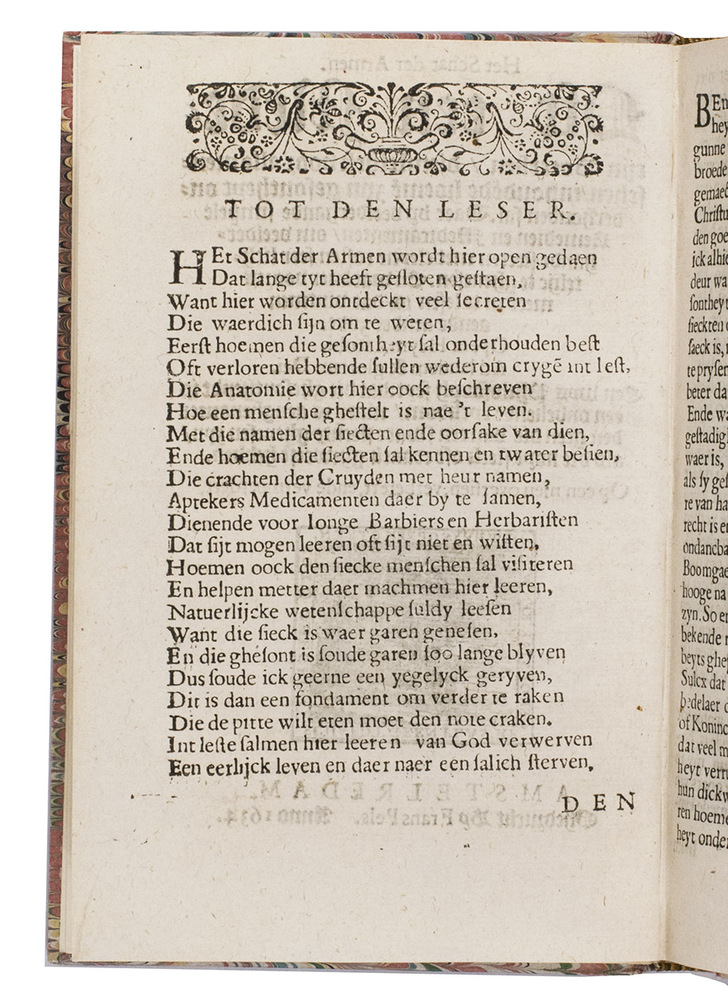 TOT DEN LESER.
HEt Schat der Armen wordt hier open gedaen
Dat lange tyt heeft gesloten gestaen,
Want hier worden ontdeckt veel secreten
Die waerdich sijn om te weten,
Eerst hoemen die gesontheyt sal onderhouden best
Oft verloren hebbende sullen wederom crygē int lest,
Die Anatomie wort hier oock beschreven
Hoe een mensche ghestelt is nae 't leven.
Met die namen der siecten ende oorsake van dien,
Ende hoemen die siecten sal kennen en twater besien,
Die crachten der Cruyden met heur namen,
Aptekers Medicamenten daer by te samen,
Dienende voor Ionge Barbiers en Herbaristen
Dat sijt mogen leeren oft sijt niet en wisten,
Hoemen oock den siecke menschen sal visiteren
En helpen metter daet machmen hier leeren,
Natuerlijcke wetenschappe suldy leesen
Want die sieck is waer garen genesen,
En die ghesont is soude garen soo lange blyven
Dus soude ick geerne een yegelyck geryven,
Dit is dan een fondament om verder te raken
Die de pitte wilt eten moet den note craken.
Int leste salmen hier leeren van God verwerven
Een eerlijck leven en daer naer een salich sterven.
DEN
BEn
hey
gunne
broede
gemaed
Christu
den goe
ick alhie
deur wa
sonthey t
sieckten o
saeck is, r
te prysen
beter da
Ende wa
gestadig
waer is,
als sy gef
re van ha
recht is e
ondancba
Boomgae
hooge na
zyn. So e
bekende r
beyts ghe
Sulcx dat
bedelaer d
of Koninc
dat veel m
heyt verr
hun dickw
ren hoeme
heyt onder